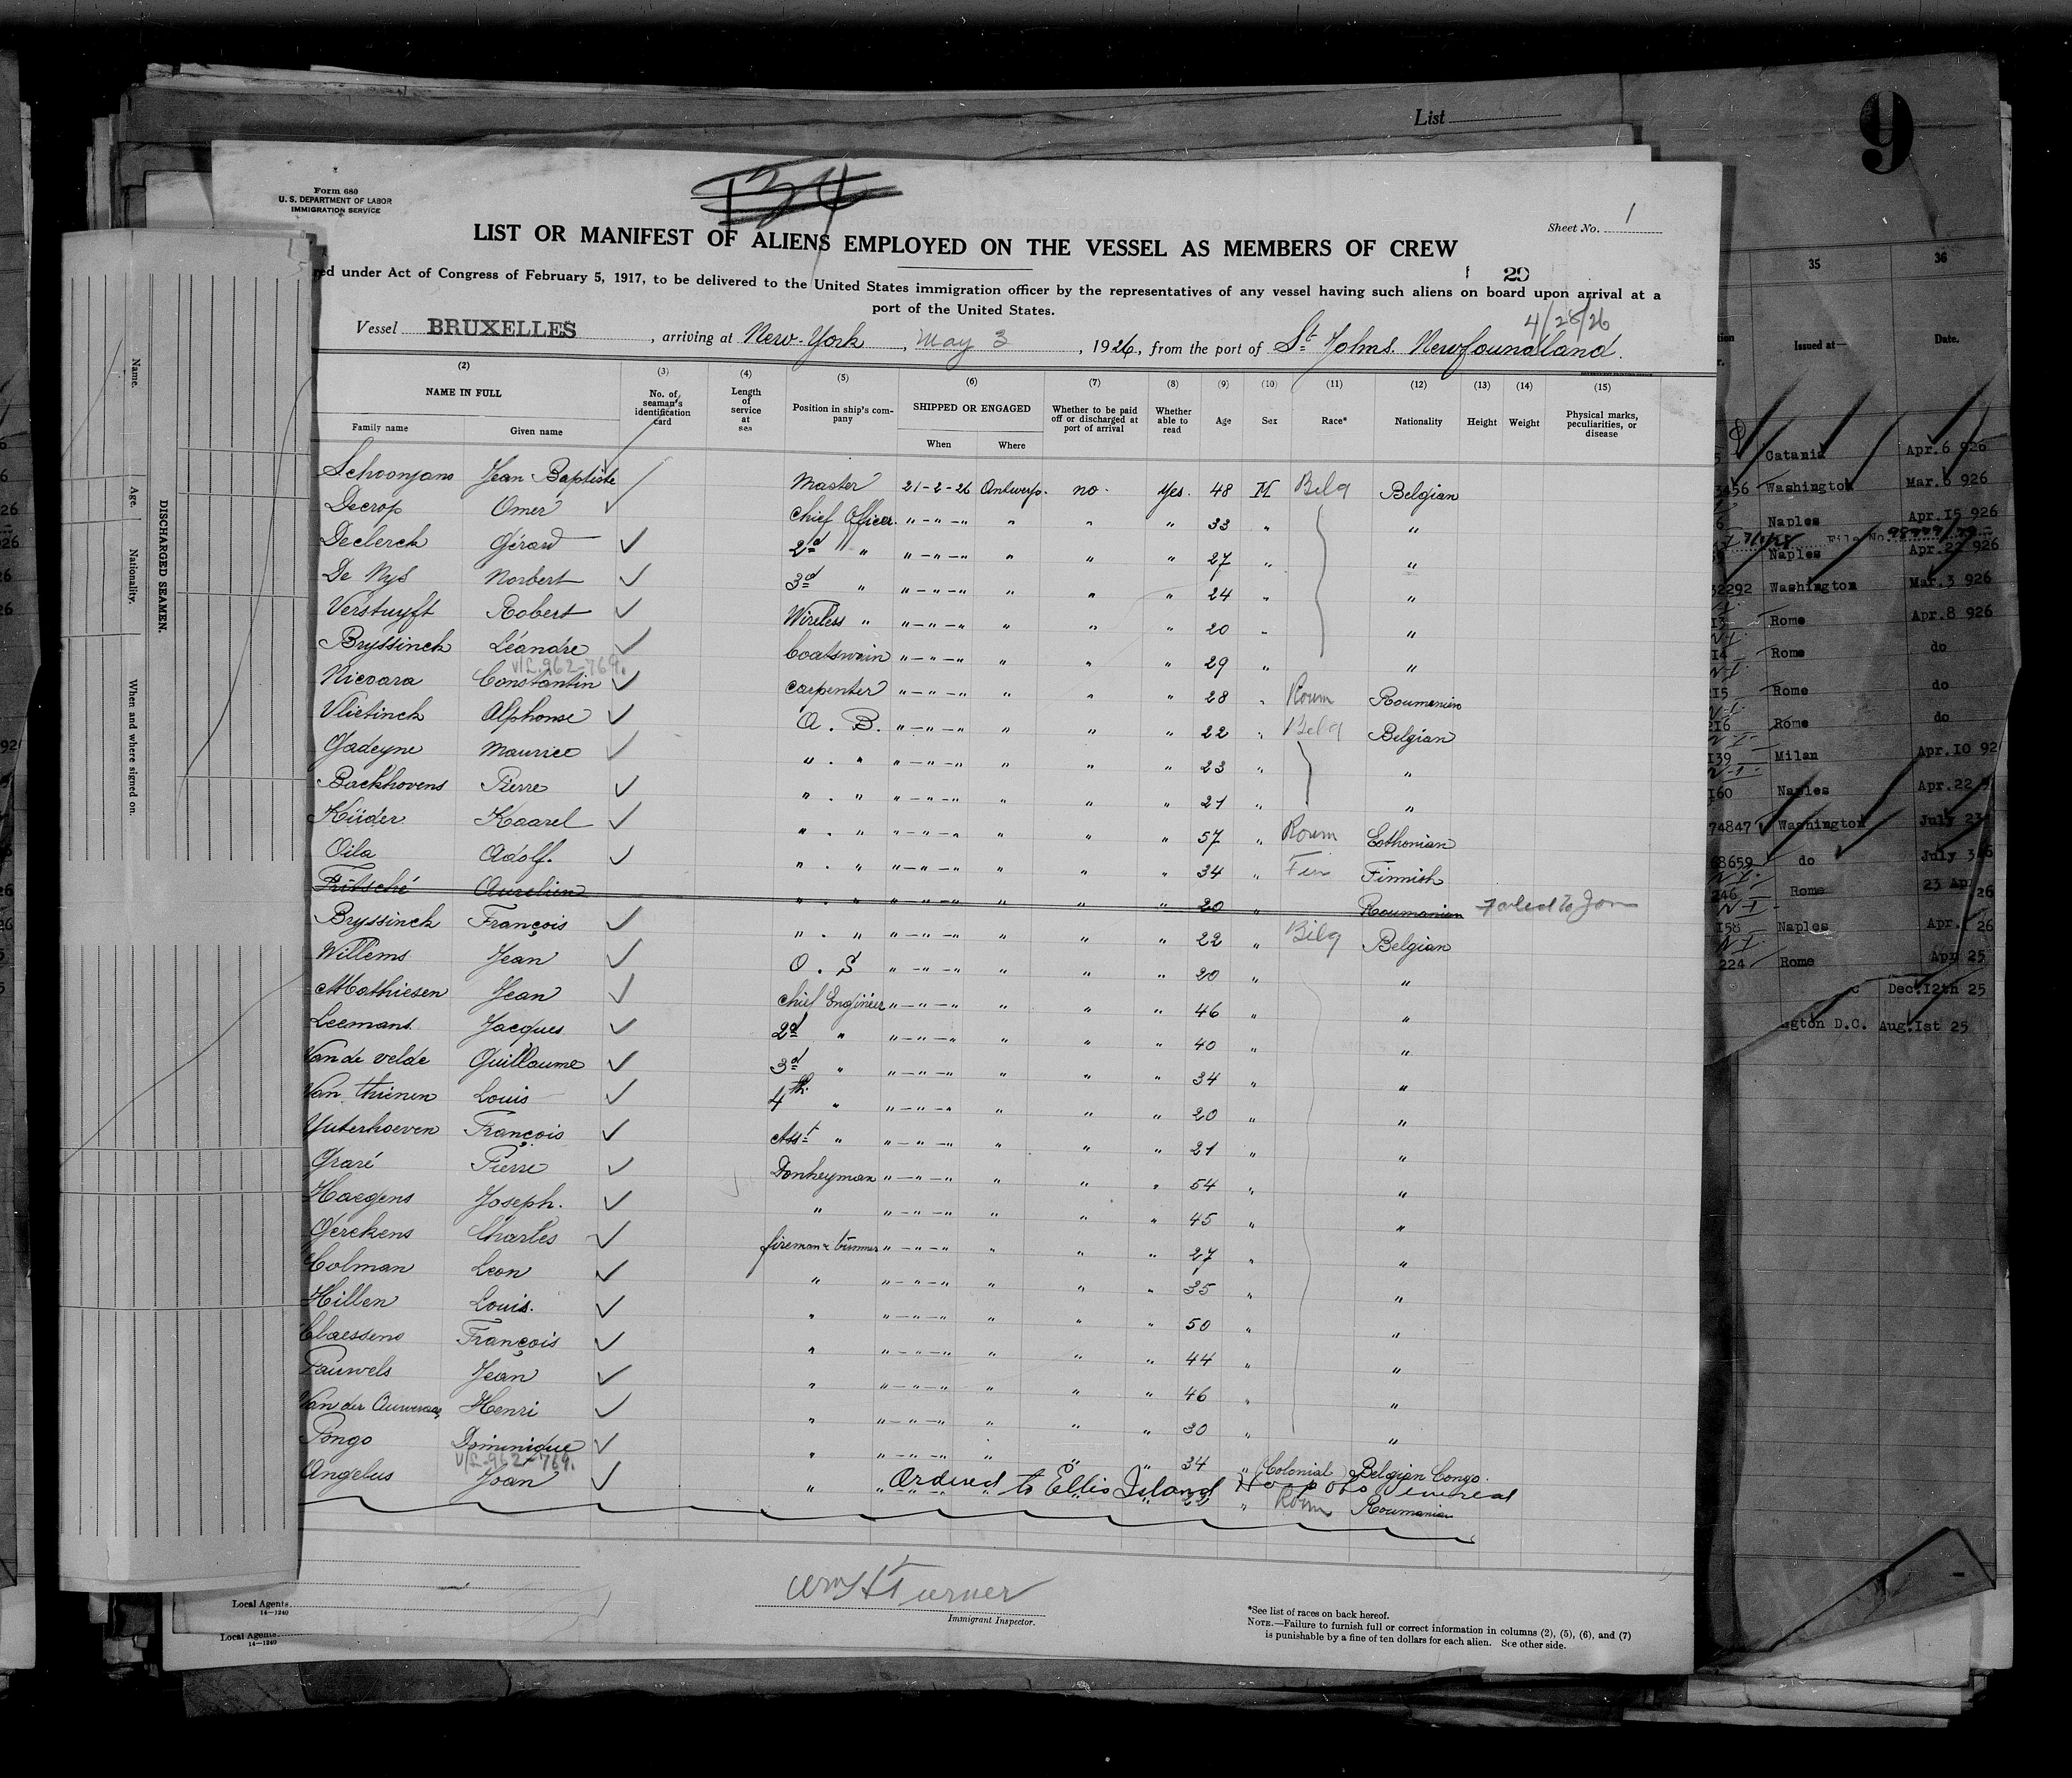 List
9
Form 680
U. S. DEPARTMENT OF LABOR
IMMIGRATION SERVICE
134
Sheet No. 1
LIST OR MANIFEST OF ALIENS EMPLOYED ON THE VESSEL AS MEMBERS OF CREW
red under Act of Congress of February 5, 1917, to be delivered to the United States immigration officer by the representatives of any vessel having such aliens on board upon arrival at a
port of the United States.
20
4/28/26
Vessel BRUXELLES, arriving at New-York, May 3, 1926, from the port of St Johns. Newfoundland.
(2) (3) (4) (5) (6) (7) (8) (9) (10) (11) (12) (13) (14) (15)
NAME IN FULL
Family name Given name
No. of seaman's identification card
Length of service at sea
Position in ship's company
SHIPPED OR ENGAGED
When Where
Whether to be paid off or discharged at port of arrival
Whether able to read
Age Sex Race* Nationality Height Weight
Physical marks, peculiarities, or disease
Schoonjans Jean Baptiste Master 21-2-26 Antwerp. no. Yes. 48 M Belg Belgian
Decrop Omer Chief Officer. "-"-" " " " 33 " "
Declerck Gérard 2d " "-"-" " " " 27 " "
De Nys Norbert 3d " "-"-" " " " 24 " "
Verstuyft Robert Wireless " "-"-" " " " 20 " "
Bryssinck Léandre boatswain "-"-" " " " 29 " "
v/L.962-769.
Nicoara Constantin carpenter "-"-" " " " 28 " Roum Roumanien
Vlietinck Alphonse A. B. "-"-" " " " 22 " Belg Belgian
Gadeyne Maurice " . " "-"-" " " " 23 " "
Backhovens Pierre " . " "-"-" " " " 21 " "
Küder Kaarel " . " "-"-" " " " 57 " Roum Esthonian
Oila Adolf. " . " "-"-" " " " 34 " Fin Finnish
Fritsché Aurelien " . " "-"-" " " " 20 " Roumanien Failed To Join
Bryssinck François " . " "-"-" " " " 22 " Belg Belgian
Willems Jean O. S "-"-" " " " 20 " "
Mathiesen Jean Chief Engineer "-"-" " " " 46 " "
Leemans Jacques 2d " "-"-" " " " 40 " "
Van de velde Guillaume 3d " "-"-" " " " 34 " "
Van thienen Louis 4th. " "-"-" " " " 20 " "
Yuterhoeven François Asst " "-"-" " " " 21 " "
Graré Pierre Donkeyman "-"-" " " " 54 " "
Haegens Joseph. " "-"-" " " " 45 " "
Gerckens Charles fireman & trimmer "-"-" " " " 27 " "
Colman Leon " "-"-" " " " 35 " "
Hillen Louis. " "-"-" " " " 50 " "
Claessens François " "-"-" " " " 44 " "
Pauwels Jean " "-"-" " " " 46 " "
Van der Auwera Henri " "-"-" " " " 30 " "
Pongo Dominique " "-"-" " " " 34 " Colonial Belgian Congo.
v/L.962-769.
Angelus Joan " Ordered to Ellis Island " Roum Roumanien
Wm H Turner
Immigrant Inspector.
*See list of races on back hereof.
NOTE.—Failure to furnish full or correct information in columns (2), (5), (6), and (7)
is punishable by a fine of ten dollars for each alien. See other side.
Local Agents.
14—1240
Local Agents.
14—1240
DISCHARGED SEAMEN.
Name. Age. Nationality. When and where signed on.
35 36
Issued at— Date.
Catania Apr.6 926
3456 Washington Mar.6 926
Naples Apr.15 926
File No.
Naples Apr.22 926
52292 Washington Mar.3 926
Rome Apr.8 926
Rome do
215 Rome do
216 Rome do
139 Milan Apr.10 92
160 Naples Apr.22 9
74847 Washington July 23
68659 do July 3
246 Rome 23 Apr 26
158 Naples Apr. 26
224 Rome Apr 25
Dec.12th 25
ngton D.C. Aug.1st 25